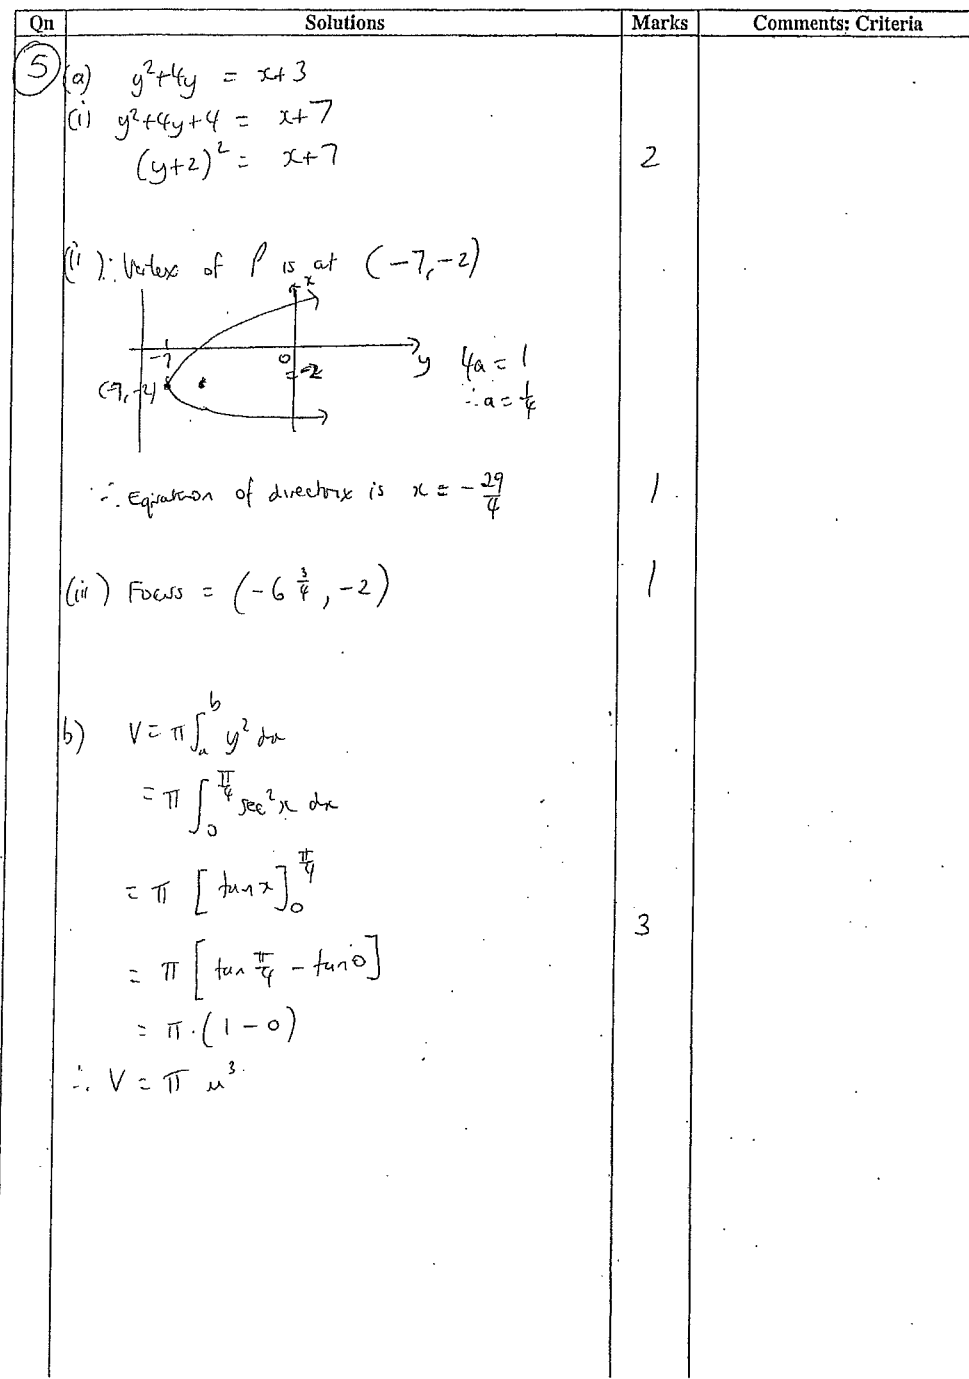 Qn Solutions Marks Comments: Criteria
5 (a) y²+4y = x+3
(i) y²+4y+4 = x+7
(y+2)² = x+7 2
(ii) ∴ Vertex of P is at (-7,-2)
x
-7 0 y 4a = 1
-2
(-7,-2) ∴ a = 1/4
∴ Equation of directrix is x = -29/4 1
(iii) Focus = (-6 3/4, -2) 1
b) V = π∫ₐᵇ y² dx
= π ∫₀^(π/4) sec²x dx
= π [tan x]₀^(π/4)
3
= π [tan π/4 - tan 0]
= π.(1-0)
∴ V = π u³